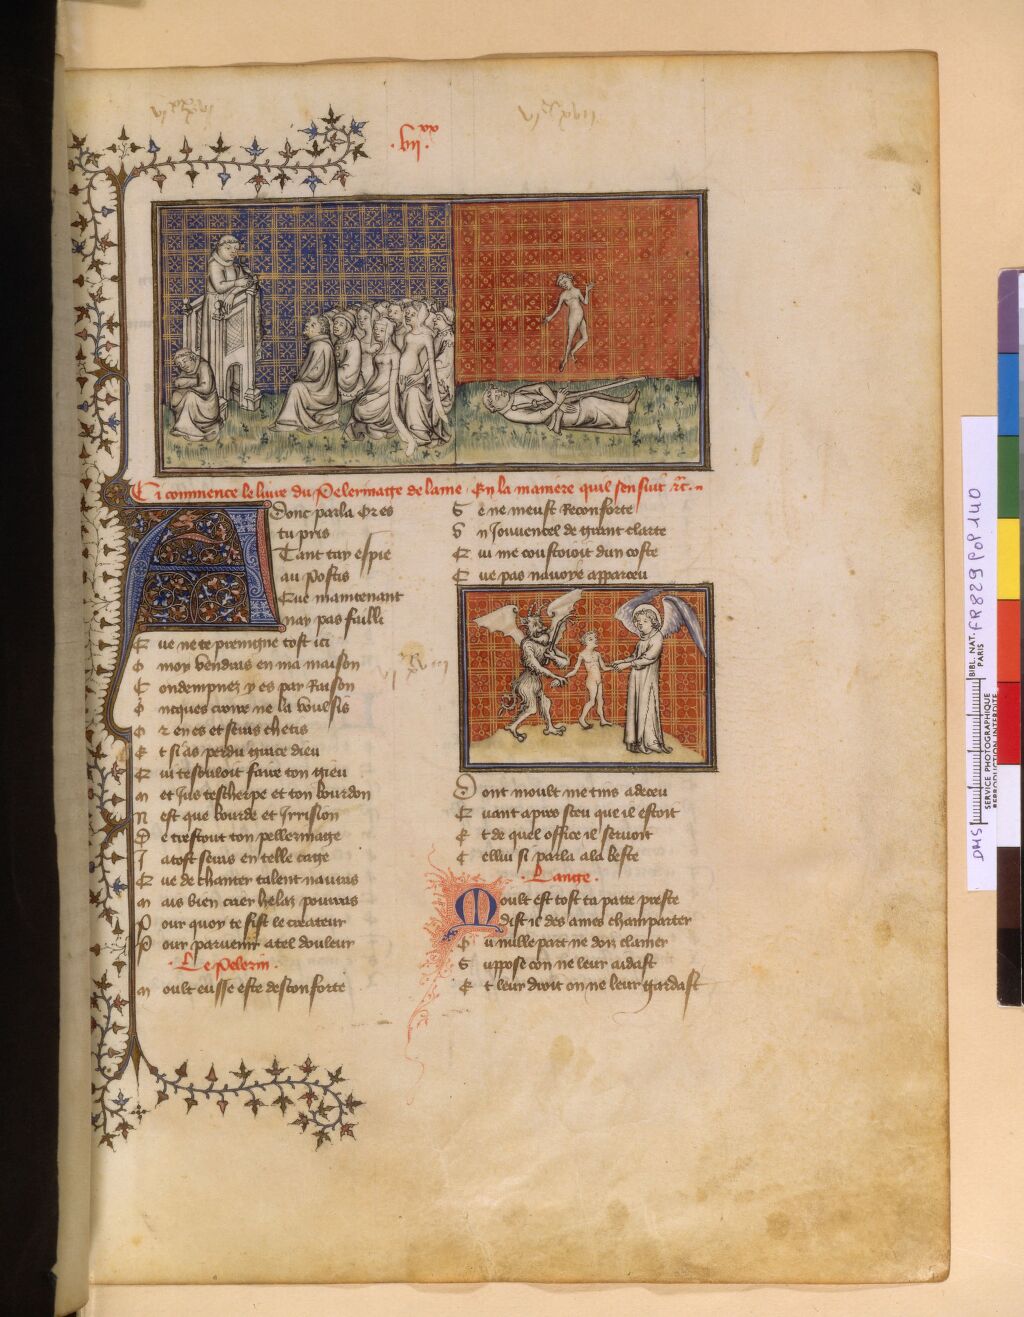 .vii.xx
Ci commence le livre du Pelerinage de lame / En la maniere quil sensuit
Adonc parla Or es
tu pris
Tant tay espie
au postis
Que maintenant
nay pas failli
Que ne te preingne tost ici
O moy vendras en ma maison
Condempnez y es par Raison
Oncques croire ne la voulsis
Or en es et seras chetis
Et si as perdu grace dieu
Qui te souloit faire ton gieu
Met jus tescherpe et ton bourdon
Nest que bourde et Irrision
De trestout ton pellerinage
Ia tost seras en telle cage
Que de chanter talent nauras
Mais bien crier helas pourras
Pour quoy te fist le createur
Pour parvenir a tel douleur
Le Pelerin.
Moult eusse este desconforte
Se ne meust Reconforte
Un Jouvencel de grant clarte
Qui me coustoioit dun coste
Que pas navoye apparceu
Dont moult me tins a deceu
Quant apres sceu que il estoit
Et de quel office il servoit
Cellui si parla a la beste
Lange.
Moult est tost ta patte preste
Dist il des ames champarter
Qua nulle part ne doiz clamer
Suppose con ne leur aidast
Et leur droit on ne leur gardast
DMS
BIBL. NAT. FR 829 Fol 140
PARIS
SERVICE PHOTOGRAPHIQUE
REPRODUCTION INTERDITE